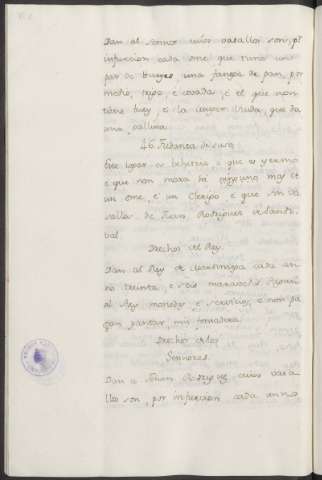 Dan al Sennor cuios vasallos son, pr
infurcion cada ome que tiene un
par de bueyes una fanega de pan, por
medio, trigo e cevada, e el que non
toviere buey, e la muger viuda, que da
una gallina.
46 Piedrafita de suso
Este logar es behetria, e que es yermo
e que non mora hi ninguno mas de
un ome, e un clerigo e que son va
sallos de Juan Rodriguez de Sando
val.
Drechos del Rey.
Dan al Rey de Martiniega cada an
no treinta, e seis maravedis. Pagan
al Rey moneda, e servicios, e non pa
gan yantar, nin fonsadera.
Drechos de los
Sennores.
Dan a Johan Rodriguez, cuios vasa
llos son, por infurcion cada anno